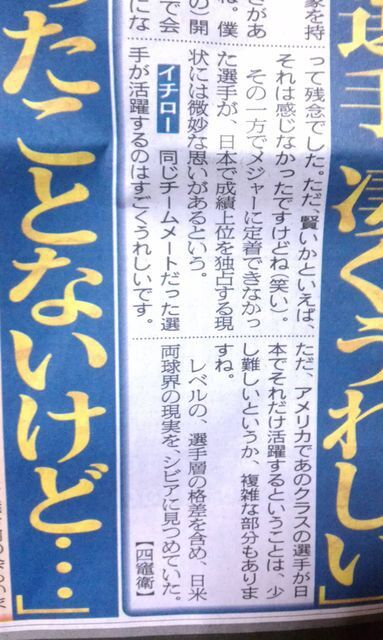 選手、凄くうれしい
を持
があ
ね。僕
の開
で会
にな
って残念でした。ただ、賢いかといえば、
それは感じなかったですけどね（笑い）。
その一方でメジャーに定着できなかっ
た選手が、日本で成績上位を独占する現
状には微妙な思いがあるという。
イチロー　同じチームメートだった選
手が活躍するのはすごくうれしいです。
ただ、アメリカであのクラスの選手が日
本でそれだけ活躍するということは、少
し難しいというか、複雑な部分もありま
すね。
レベルの、選手層の格差を含め、日米
両球界の現実を、シビアに見つめていた。
【四竈衛】
ったことないけど…」